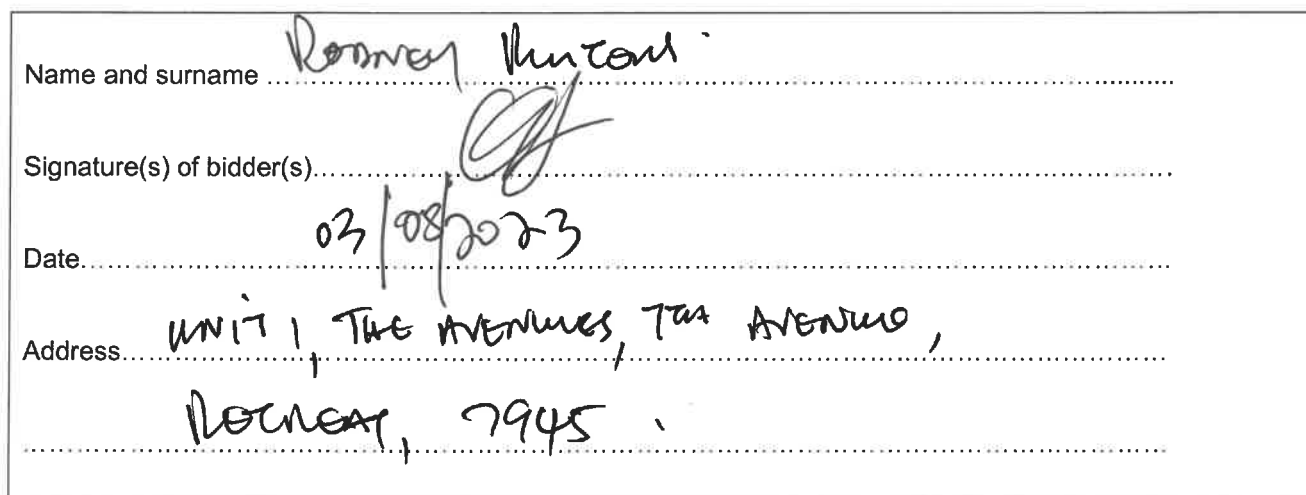 Name and surname ........ Rodney
Signature(s) of bidder(s)........
Date........ 03/08/2023
Address........ UNIT 1, THE AVENUES, 7TH AVENUE,
RETREAT, 7945.